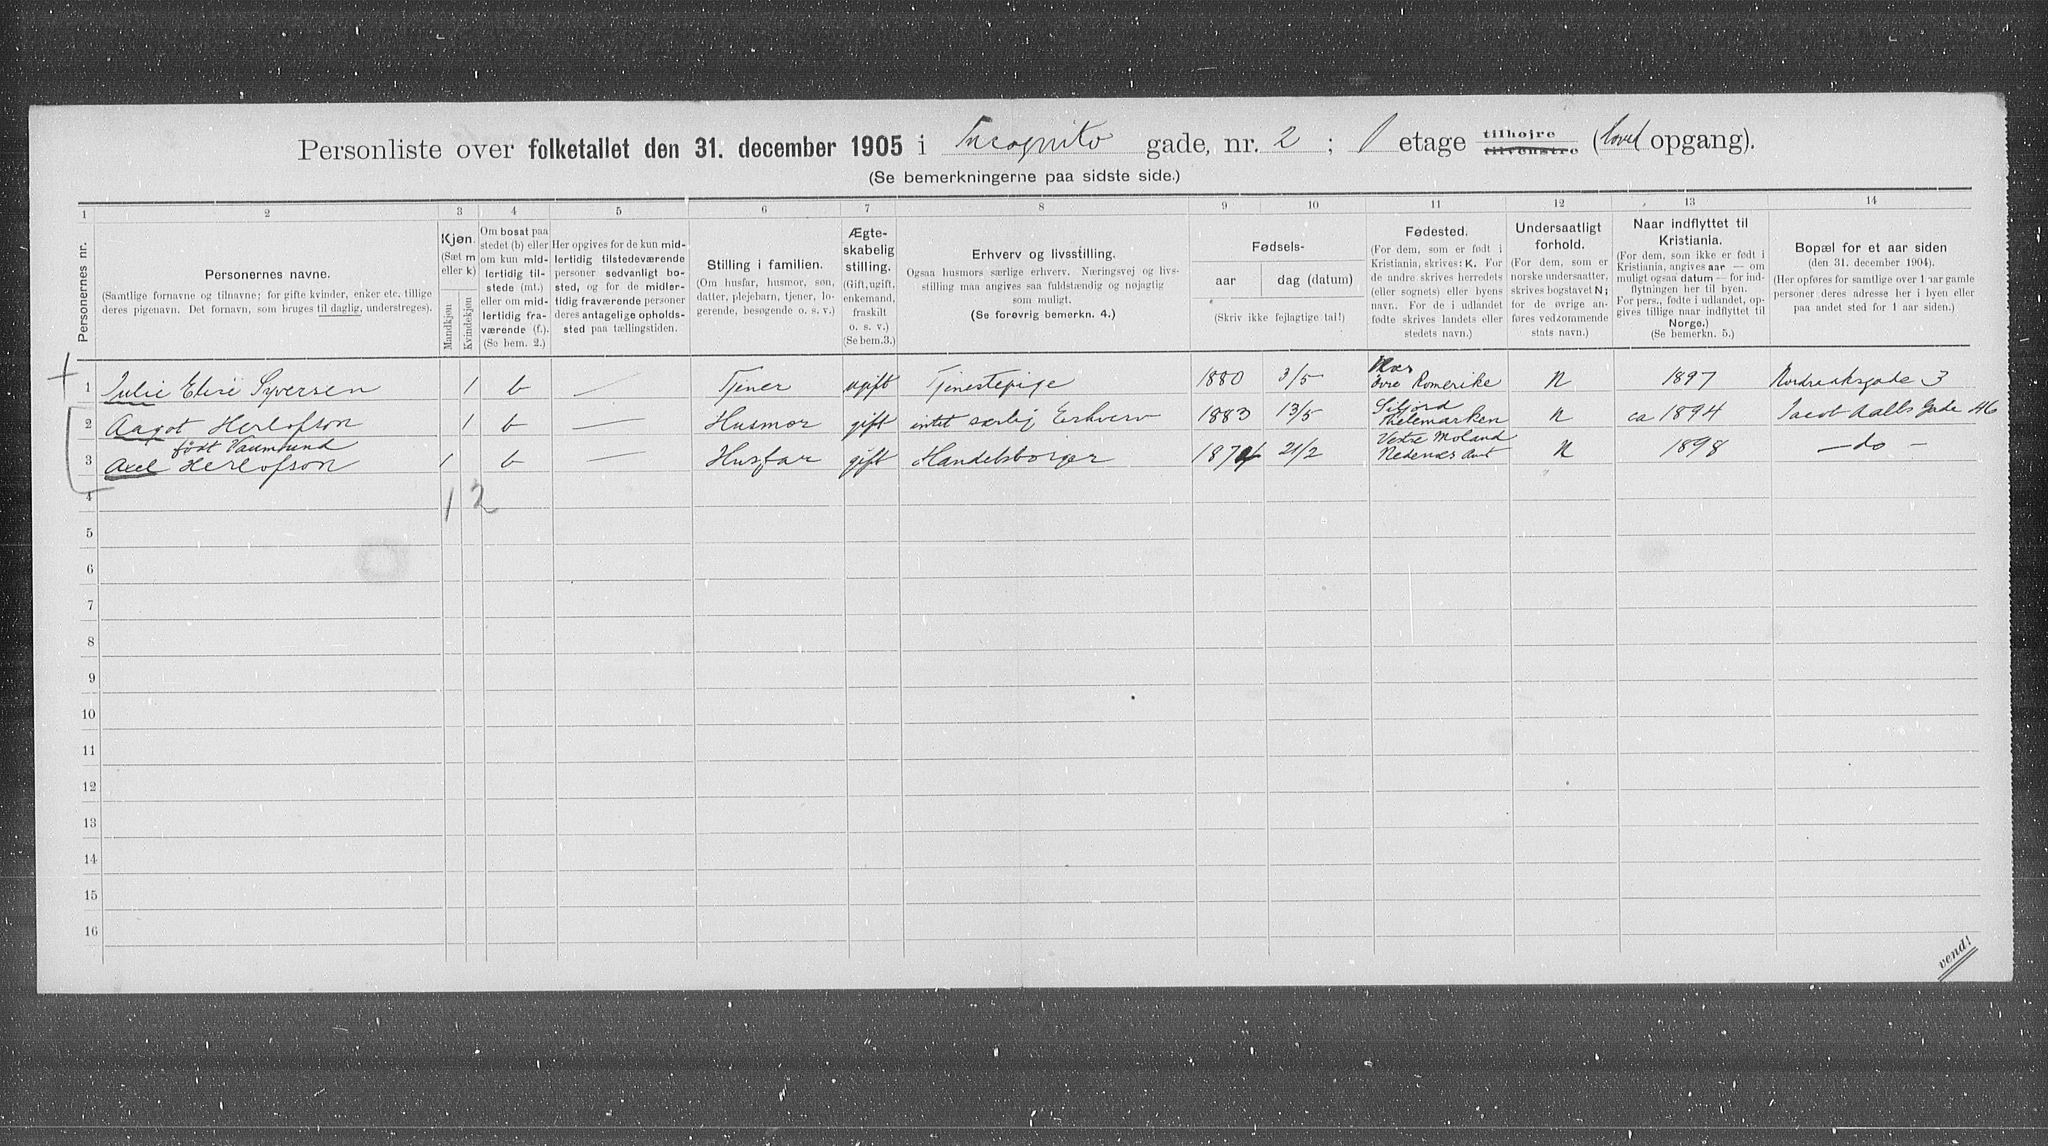 Personliste over folketallet den 31. december 1905 i Incognito gade, nr. 2 ; 1 etage tilhøjre tilvenstre (hovel opgang).
(Se bemerkningerne paa sidste side.)
1 2 3 4 5 6 7 8 9 10 11 12 13 14
Personernes nr.
Personernes navne.
(Samtlige fornavne og tilnavne; for gifte kvinder, enker etc. tillige
deres pigenavn. Det fornavn, som bruges til daglig, understreges).
Kjøn.
(Sæt m
eller k)
Mandkjøn
Kvindekjøn
Om bosat paa
stedet (b) eller
om kun mid-
lertidig til-
stede (mt.)
eller om mid-
lertidig fra-
værende (f.).
(Se bem. 2.)
Her opgives for de kun mid-
lertidig tilstedeværende
personer sedvanlig bo-
sted, og for de midler-
tidig fraværende personer
deres antagelige opholds-
sted paa tællingstiden.
Stilling i familien.
(Om husfar, husmor, søn,
datter, plejebarn, tjener, lo-
gerende, besøgende o. s. v.)
Ægte-
skabelig
stilling.
(Gift, ugift,
enkemand,
fraskilt
o. s. v.)
(Se bem.3.)
Erhverv og livsstilling.
Ogsaa husmors særlige erhverv. Næringsvej og livs-
stilling maa angives saa fuldstændig og nøjagtig
som muligt.
(Se forøvrig bemerkn. 4.)
Fødsels-
aar
dag (datum)
(Skriv ikke fejlagtige tal!)
Fødested.
(For dem, som er født i
Kristiania, skrives: K. For
de andre skrives herredets
(eller sognets) eller byens
navn. For de i udlandet
fødte skrives landets eller
stedets navn.)
Undersaatligt
forhold.
(For dem, som er
norske undersaatter,
skrives bogstavet N;
for de øvrige an-
føres vedkommende
stats navn.)
Naar indflyttet til
Kristiania.
(For dem, som ikke er født i
Kristiania, angives aar — om
muligt ogsaa datum — for ind-
flytningen her til byen.
For pers., fødte i udlandet, op-
gives tillige naar indflyttet til
Norge.)
(Se bemerkn. 5.)
Bopæl for et aar siden
(den 31. december 1904).
(Her opføres for samtlige over 1 aar gamle
personer deres adresse her i byen eller
paa andet sted for 1 aar siden.)
1 Julie Elise Syversen 1 b — Tjener ugift Tjenestepige 1880 3/5 Næs Øvre Romerike N 1897 Nordraaksgade 3
2 Aagot Herlofson 1 b — Husmor gift intet særlig Erhverv 1883 13/5 Siljord Thelemarken N ca 1894 Jacob Aalls Gade 46
født
3 Axel Herlofson 1 b — Husfar gift Handelsborger 1874 21/2 Vestre Moland Nedenæs Amt N 1898 — do —
4
1 2
5
6
7
8
9
10
11
12
13
14
15
16
vend!